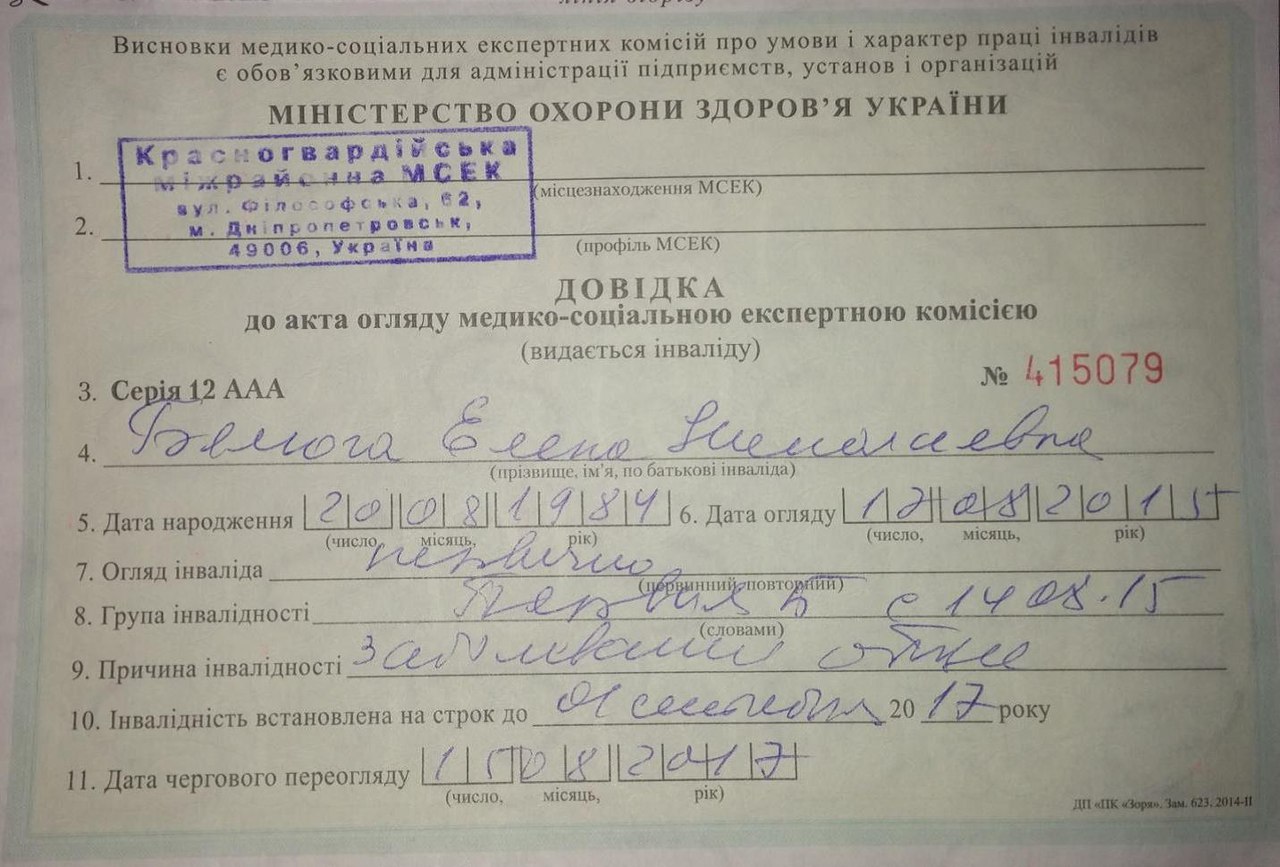 Висновки медико-соціальних експертних комісій про умови і характер праці інвалідів
є обов’язковими для адміністрації підприємств, установ і організацій
МІНІСТЕРСТВО ОХОРОНИ ЗДОРОВ’Я УКРАЇНИ
Красногвардійська
міжрайонна МСЕК
вул. Філософська, 62,
м. Дніпропетровськ,
49006, Україна
1.
(місцезнаходження МСЕК)
2.
(профіль МСЕК)
ДОВІДКА
до акта огляду медико-соціальною експертною комісією
(видається інваліду)
3. Серія 12 ААА № 415079
4. Елена
(прізвище, ім’я, по батькові інваліда)
5. Дата народження 20 08 1984 6. Дата огляду 17 08 2015
(число, місяць, рік) (число, місяць, рік)
7. Огляд інваліда первично
(первинний, повторний)
8. Група інвалідності Первая с 14 08.15
(словами)
9. Причина інвалідності Заболевание общее
10. Інвалідність встановлена на строк до 01 сентября 20 17 року
11. Дата чергового переогляду 15 08 2017
(число, місяць, рік)
ДП «ПК «Зоря». Зам. 623. 2014-ІІ